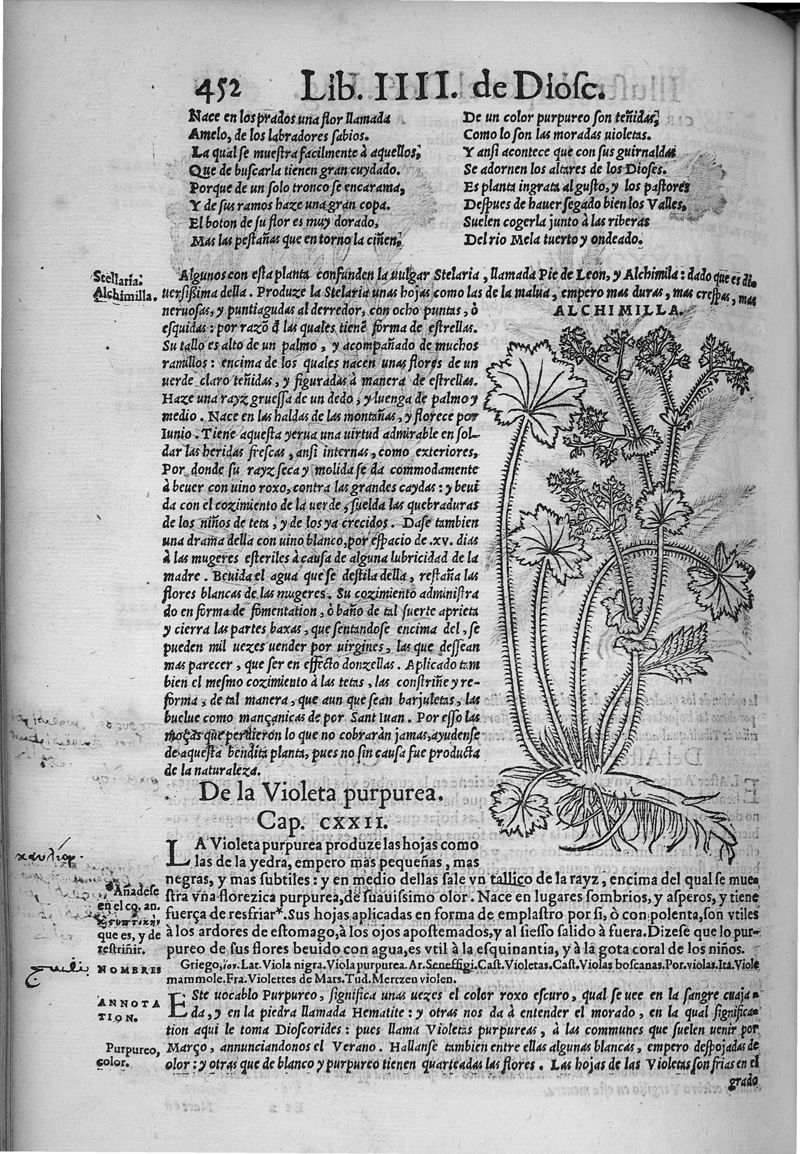 452 Lib. IIII. de Diosc.
Nace en los prados una flor llamada
Amelo, de los labradores sabios.
La qual se muestra facilmente à aquellos,
Que de buscarla tienen gran cuydado.
Porque de un solo tronco se encarama,
Y de sus ramos haze una gran copa.
El boton de su flor es muy dorado,
Mas las pestañas que en torno la ciñen,
De un color purpureo son teñidas,
Como lo son las moradas uioletas.
Y ansi acontece que con sus guirnaldas
Se adornen los altares de los Dioses.
Es planta ingrata al gusto, y los pastores
Despues de hauer segado bien los Valles,
Suelen cogerla junto à las riberas
Del rio Mela tuerto y ondeado.
Stellaria.
Alchimilla.
Algunos con esta planta confunden la uulgar Stelaria, llamada Pie de Leon, y Alchimila: dado que es di-
uersißima della. Produze la Stelaria unas hojas como las de la malua, empero mas duras, mas crespas, mas
neruosas, y puntiagudas al derredor, con ocho puntas, ò
esquidas: por razõ d̃ las quales tienẽ forma de estrellas.
Su tallo es alto de un palmo, y acompañado de muchos
ramillos: encima de los quales nacen unas flores de un
uerde claro teñidas, y figuradas à manera de estrellas.
Haze una rayz gruessa de un dedo, y luenga de palmo y
medio. Nace en las haldas de las montañas, y florece por
Iunio. Tiene aquesta yerua una uirtud admirable en sol-
dar las heridas frescas, ansi internas, como exteriores,
Por donde su rayz seca y molida se da commodamente
à beuer con uino roxo, contra las grandes caydas: y beui
da con el cozimiento de la uerde, suelda las quebraduras
de los niños de teta, y de los ya crecidos. Dase tambien
una drama della con uino blanco, por espacio de .xv. dias
à las mugeres esteriles à causa de alguna lubricidad de la
madre. Beuida el agua que se destila della, restaña las
flores blancas de las mugeres. Su cozimiento administra
do en forma de fomentation, ò baño de tal suerte aprieta
y cierra las partes baxas, que sentandose encima del, se
pueden mil uezes uender por uirgines, las que dessean
mas parecer, que ser en effecto donzellas. Aplicado tam
bien el mesmo cozimiento à las tetas, las constriñe y re-
forma, de tal manera, que aun que sean barjuletas, las
buelue como mançanicas de por Sant Iuan. Por esso las
moças que perdieron lo que no cobrarán jamas, ayudense
de aquesta bendita planta, pues no sin causa fue producta
de la naturaleza.
ALCHIMILLA.
De la Violeta purpurea.
Cap. CXXII.
LA Violeta purpurea produze las hojas como
las de la yedra, empero mas pequeñas, mas
negras, y mas subtiles: y en medio dellas sale vn tallico de la rayz, encima del qual se mue-
stra vna florezica purpurea, de suauissimo olor. Nace en lugares sombrios, y asperos, y tiene
fuerça de resfriar*. Sus hojas aplicadas en forma de emplastro por si, ò con polenta, son vtiles
à los ardores de estomago, à los ojos apostemados, y al siesso salido à fuera. Dizese que lo pur-
pureo de sus flores beuido con agua, es vtil à la esquinantia, y à la gota coral de los niños.
καυλίον
*Añadese
en el co. an.
que es, y de
restriñir.
NOMBRES
Griego, ἴον. Lat. Viola nigra. Viola purpurea. Ar. Seneffigi. Cast. Violetas. Cast. Violas boscanas. Por. violas. Ita. Viole
mammole. Fra. Violettes de Mars. Tud. Mertzen violen.
ANNOTA
TION.
ESte uocablo Purpureo, significa unas uezes el color roxo escuro, qual se uee en la sangre cuaja-
da, y en la piedra llamada Hematite: y otras nos da à entender el morado, en la qual significa-
tion aqui le toma Dioscorides: pues llama Violetas purpureas, à las communes que suelen uenir por
Março, annunciandonos el Verano. Hallanse tambien entre ellas algunas blancas, empero despojadas de
olor: y otras que de blanco y purpureo tienen quarteadas las flores. Las hojas de las Violetas son frias en el
Purpureo,
color.
grado